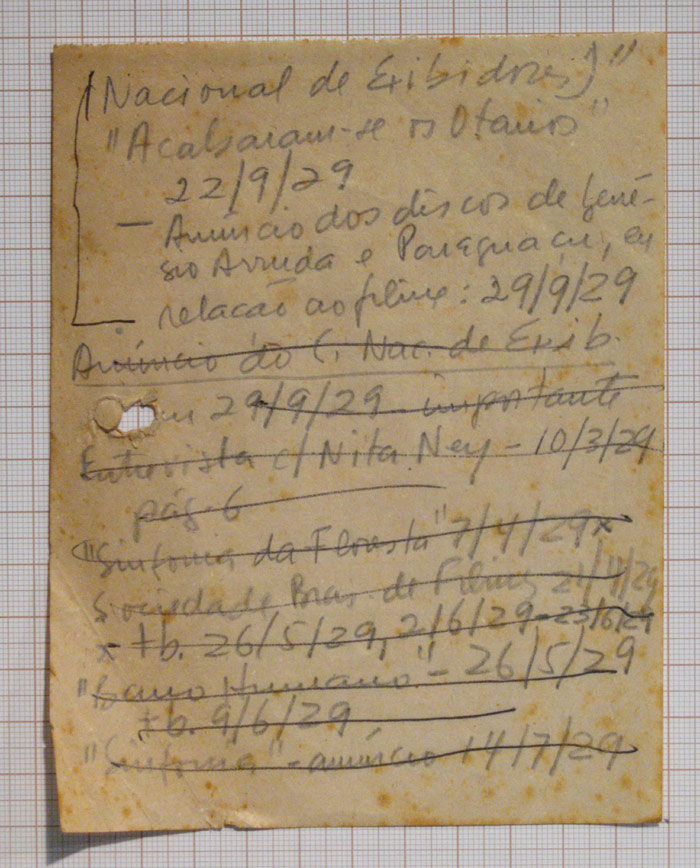 (Nacional de Exibidores)"
"Acabaram-se os Otarios"
22/9/29
— Anúncio dos discos de Gené-
sio Arruda e Paraguaçu, em
relação ao filme: 29/9/29
Anúncio do C. Nac. de Exib.
em 29/9/29 - importante
Entrevista c/ Nita Ney - 10/3/29
pág. 6
"Sinfonia da Floresta" 7/4/29 x
Sociedade Bras. de Filmes 21/4/29
x - tb. 26/5/29, 2/6/29 - 23/6/29
"Barro Humano" - 26/5/29
tb. 9/6/29
"Sinfonia" - anúncio 14/7/29